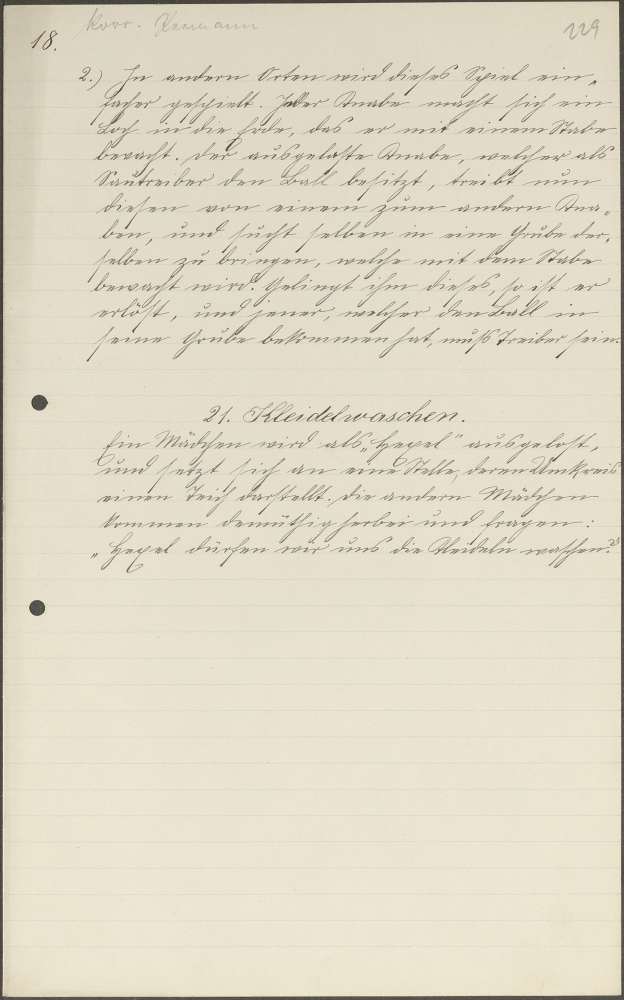 Korr. Hermann
18.
229
2.) In andern Orten wird dieses Spiel ein-
facher gespielt. Jeder Knabe macht sich ein
Loch in die Erde, das er mit einem Stabe
bewacht. Der ausgeloste Knabe, welcher als
Sautreiber den Ball besitzt, treibt nun
diesen von einem zum andern Kna-
ben, und sucht selben in eine Grube der-
selben zu bringen, welche mit dem Stabe
bewacht wird. Gelingt ihm dieses, so ist er
erlöst, und jener, welcher den Ball in
seine Grube bekommen hat, muß Treiber sein.
21. Kleidelwaschen.
Ein Mädchen wird als „Hexel" ausgelost,
und setzt sich an eine Stelle, deren Umkreis
einen Teich darstellt. Die andern Mädchen
kommen demüthig herbei und fragen:
„Hexel dürfen wir uns die Kleideln waschen?"